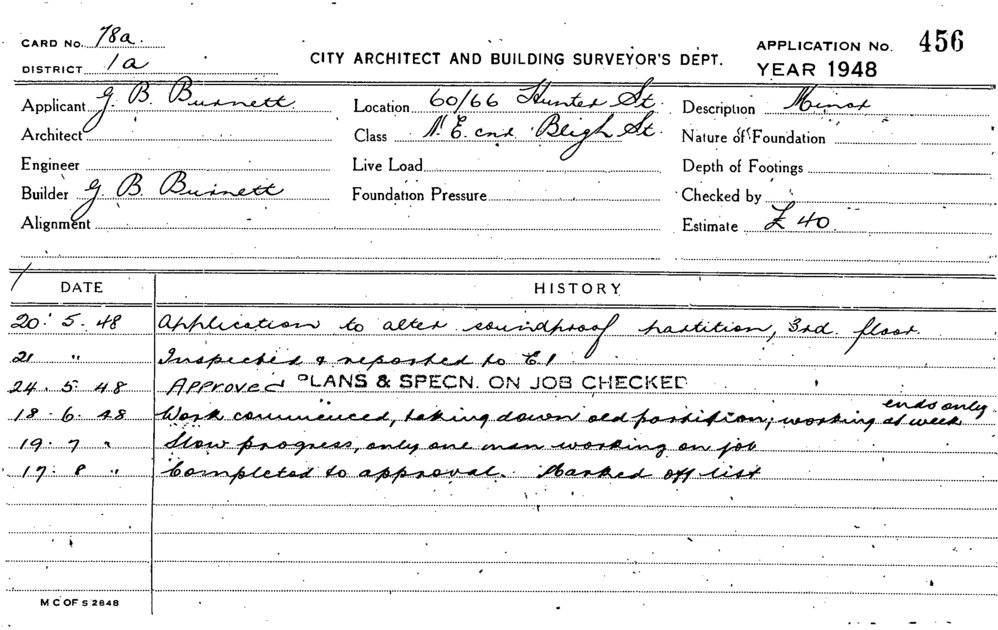 CARD No. 78a.
DISTRICT 1a
CITY ARCHITECT AND BUILDING SURVEYOR'S DEPT.
APPLICATION No. 456
YEAR 1948
Applicant G. B. Burnett
Location 60/66 Hunter St.
Description Minor
Architect
Class N. E. cnr Bligh St.
Nature of Foundation
Engineer
Live Load
Depth of Footings
Builder G. B. Burnett
Foundation Pressure
Checked by
Alignment
Estimate £ 40.
DATE HISTORY
20. 5. 48 Application to alter soundproof partition, 3rd. floor.
21 " Inspected & reported to C.I
24. 5. 48 Approved PLANS & SPECN. ON JOB CHECKED
18. 6. 48 Work commenced, taking down old partition; working at week ends only.
19. 7 " Slow progress, only one man working on job
17. 8 " Completed to approval. Marked off list
M C OF S 2848